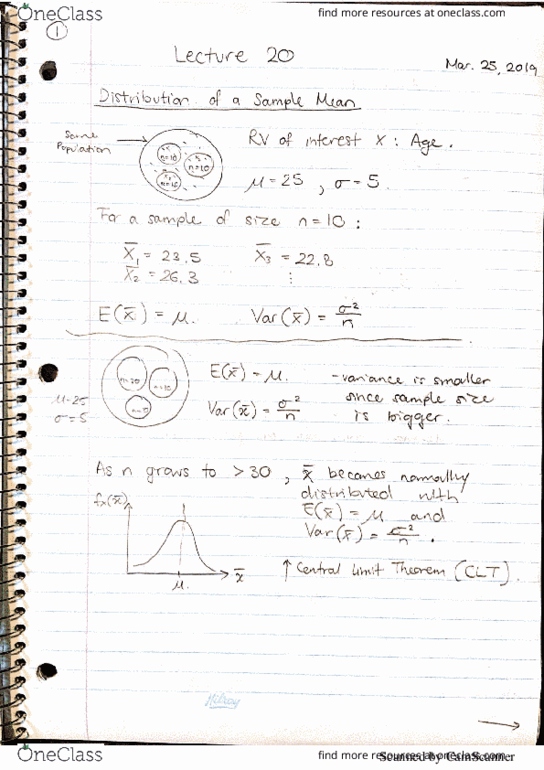 OneClass
find more resources at oneclass.com
1
Lecture 20
Mar. 25, 2019
Distribution of a Sample Mean
Some Population
n=10
n=10
n=10
RV of interest X : Age.
μ=25 , σ=5.
For a sample of size n=10 :
X̄₁ = 23.5
X̄₃ = 22.8
X̄₂ = 26.3
⋮
E(x̄) = μ.
Var(x̄) = σ²/n
E(x̄) = μ.
- variance is smaller
since sample size
is bigger.
Var(x̄) = σ²/n
μ=25
σ=5
As n grows to >30 , x̄ becomes normally
distributed with
E(x̄) = μ and
Var(x̄) = σ²/n .
fx(x̄)
x̄
μ.
↑ Central Limit Theorem (CLT).
Hilroy
→
OneClass
find more resources at oneclass.com
Scanned by CamScanner